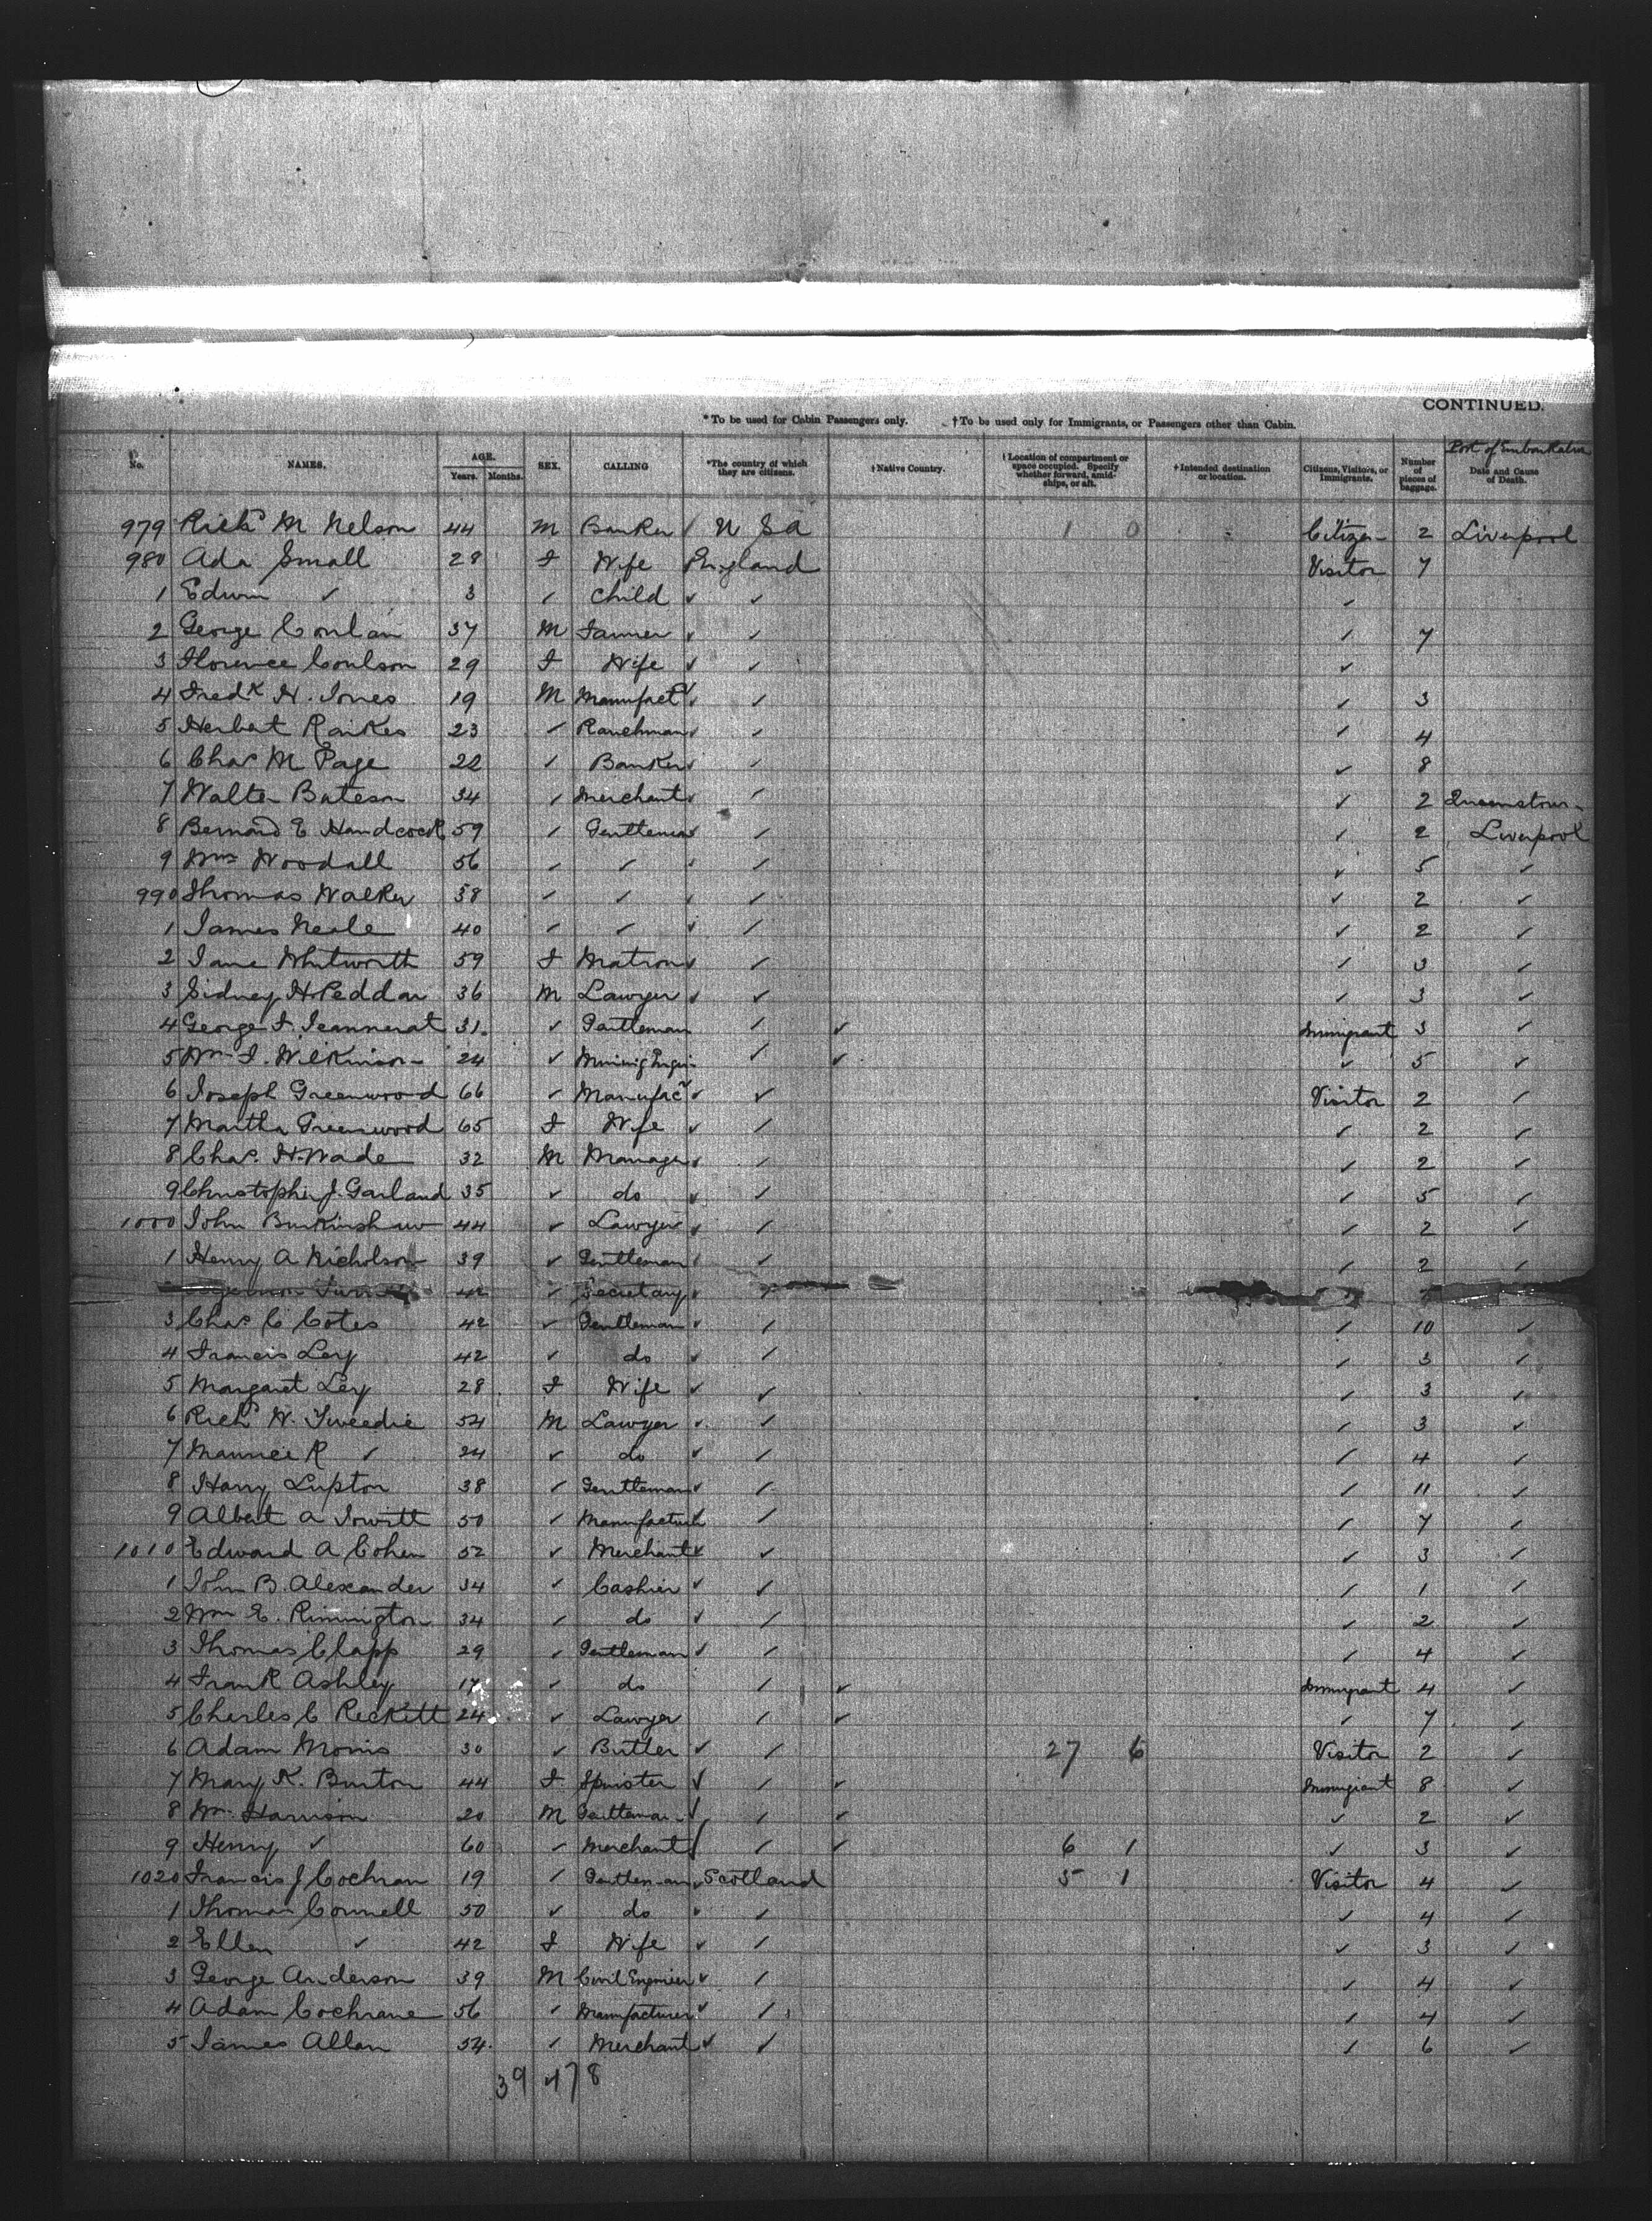 CONTINUED.
* To be used for Cabin Passengers only. † To be used only for Immigrants, or Passengers other than Cabin.
No. NAMES. AGE. Years. Months. SEX. CALLING *The country of which they are citizens. †Native Country. †Location of compartment or space occupied. Specify whether forward, amidships, or aft. †Intended destination or location. Citizens, Visitors, or Immigrants. Number of pieces of baggage. Port of Embarkation Date and Cause of Death.
979 Richd M Nelson 44 M Banker U S A 1 0 Citizen 2 Liverpool
980 Ada Small 28 F Wife England Visitor 7
1 Edwin ✓ 3 ✓ Child ✓ ✓ ✓
2 George 37 M ✓ ✓ ✓ 7
3 Florence Coulson 29 F Wife ✓ ✓ ✓
4 Fredk H. Jones 19 M Manufactr ✓ ✓ ✓ 3
5 Herbert Raikes 23 ✓ Ranchman ✓ ✓ ✓ 4
6 Chas M Page 22 ✓ Banker ✓ ✓ ✓ 8
7 Walter Bateson 34 ✓ Merchant ✓ ✓ ✓ 2 Queenstown
8 Bernard E Handcock 59 ✓ Gentleman ✓ ✓ ✓ 2 Liverpool
9 Wm Woodall 56 ✓ ✓ ✓ ✓ ✓ 5 ✓
990 Thomas Walker 58 ✓ ✓ ✓ ✓ ✓ 2 ✓
1 James Neale 40 ✓ ✓ ✓ ✓ ✓ 2 ✓
2 Jane Whitworth 59 F Matron ✓ ✓ ✓ 3 ✓
3 Sidney H Peddar 36 M Lawyer ✓ ✓ ✓ 3 ✓
4 George F. Jeannerat 31 ✓ Gentleman ✓ ✓ Immigrant 3 ✓
5 Wm F. Wilkinson 24 ✓ Mining Engi. ✓ ✓ ✓ 5 ✓
6 Joseph Greenwood 66 ✓ Manufacr ✓ ✓ Visitor 2 ✓
7 Martha Greenwood 65 F Wife ✓ ✓ ✓ 2 ✓
8 Chas. H. Wade 32 M Manager ✓ ✓ ✓ 2 ✓
9 Christopher J. Garland 35 ✓ do ✓ ✓ ✓ 5 ✓
1000 John Burkinshaw 44 ✓ Lawyer ✓ ✓ ✓ 2 ✓
1 Henry A Nicholson 39 ✓ Gentleman ✓ ✓ ✓ 2 ✓
42 ✓ Secretary ✓ ✓ ✓
3 Chas C Cotes 42 ✓ Gentleman ✓ ✓ ✓ 10 ✓
4 Francis Ley 42 ✓ do ✓ ✓ ✓ 3 ✓
5 Margaret Ley 28 F Wife ✓ ✓ ✓ 3 ✓
6 Richd W. Tweedie 54 M Lawyer ✓ ✓ ✓ 3 ✓
7 Maurice R ✓ 24 ✓ do ✓ ✓ ✓ 4 ✓
8 Harry Lupton 38 ✓ Gentleman ✓ ✓ ✓ 11 ✓
9 Albert A Jowitt 50 ✓ Manufacturer ✓ ✓ 7 ✓
1010 Edward A Cohen 52 ✓ Merchant ✓ ✓ ✓ 3 ✓
1 John B. Alexander 34 ✓ Cashier ✓ ✓ ✓ 1 ✓
2 Wm E. Rimington 34 ✓ do ✓ ✓ ✓ 2 ✓
3 Thomas Clapp 29 ✓ Gentleman ✓ ✓ ✓ 4 ✓
4 Frank Ashley 17 ✓ do ✓ ✓ Immigrant 4 ✓
5 Charles C Reckitt 24 ✓ Lawyer ✓ ✓ ✓ 7 ✓
6 Adam Morris 30 ✓ Butler ✓ ✓ 27 6 Visitor 2 ✓
7 Mary K. Burton 44 F Spinster ✓ ✓ ✓ Immigrant 8 ✓
8 Wm Harrison 20 M Gentleman ✓ ✓ ✓ ✓ 2 ✓
9 Henry ✓ 60 ✓ Merchant ✓ ✓ 6 1 ✓ 3 ✓
1020 Francis J Cochran 19 ✓ Gentleman Scotland 5 1 Visitor 4 ✓
1 Thomas Connell 50 ✓ do ✓ ✓ ✓ 4 ✓
2 Ellen ✓ 42 F Wife ✓ ✓ ✓ 3 ✓
3 George Anderson 39 M Civil Engineer ✓ ✓ ✓ 4 ✓
4 Adam Cochrane 56 ✓ Manufacturer ✓ ✓ ✓ 4 ✓
5 James Allan 54 ✓ Merchant ✓ ✓ ✓ 6 ✓
39 + 78